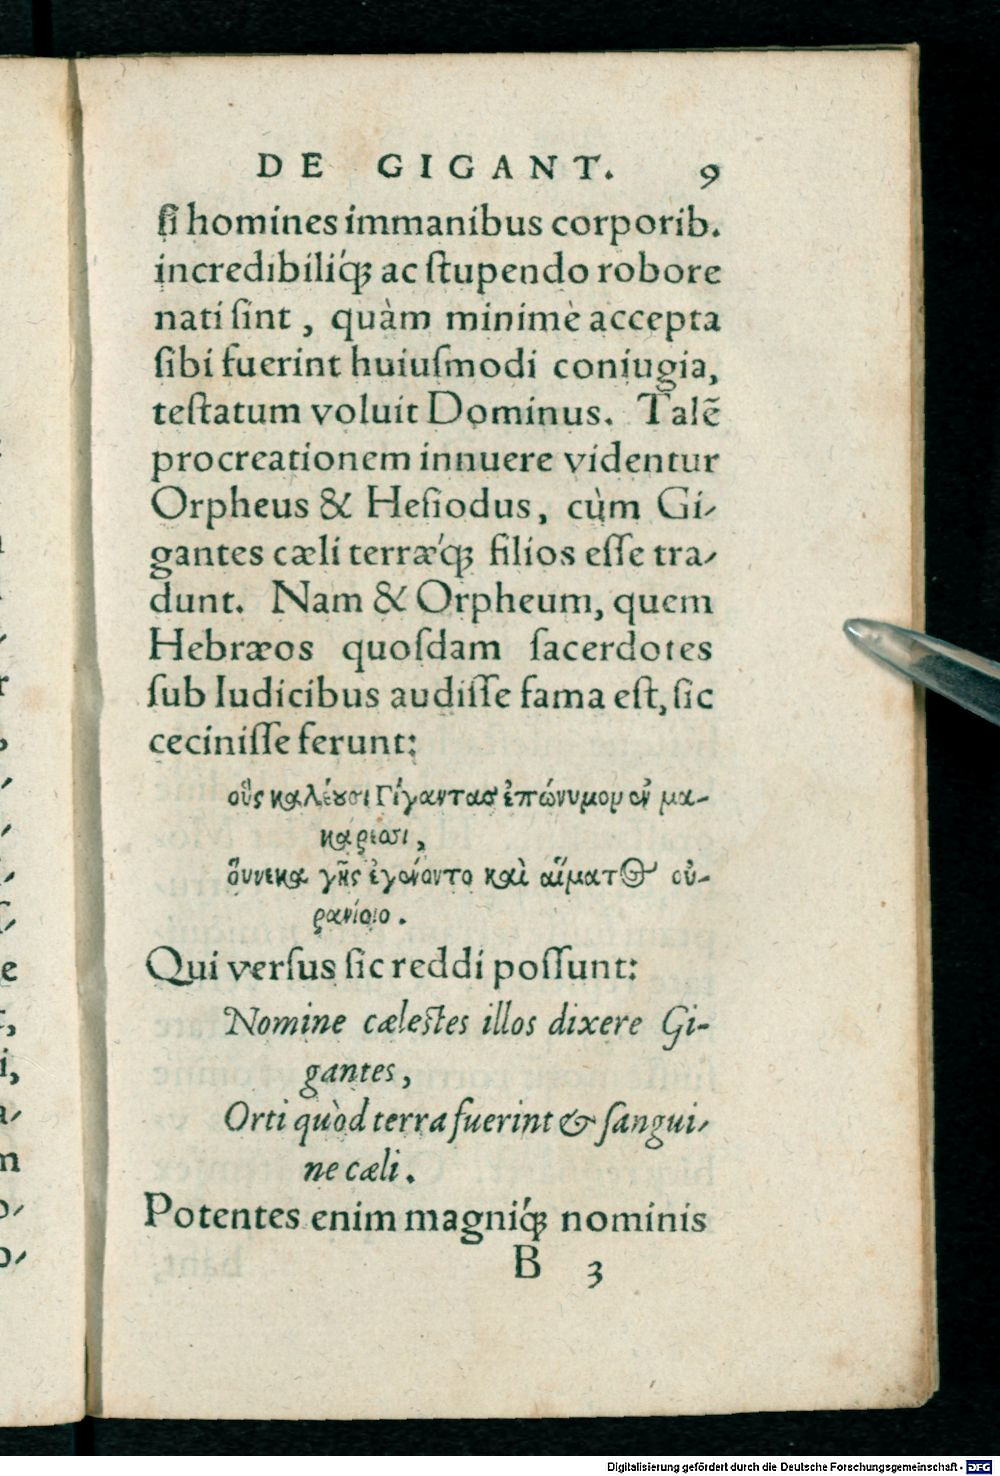 DE GIGANT. 9
ſi homines immanibus corporib.
incredibiliq́; ac ſtupendo robore
nati ſint, quàm minimè accepta
ſibi fuerint huiuſmodi coniugia,
teſtatum voluit Dominus. Talẽ
procreationem innuere videntur
Orpheus & Heſiodus, cùm Gi-
gantes cæli terræq́; filios eſſe tra-
dunt. Nam & Orpheum, quem
Hebræos quoſdam ſacerdotes
ſub Iudicibus audiſſe fama eſt, ſic
ceciniſſe ferunt:
οὓς καλέουσι Γίγαντας ἐπώνυμον ἐν μα-
κάρεσσι,
οὕνεκα γῆς ἐγένοντο καὶ αἵματος οὐ-
ρανίοιο.
Qui verſus ſic reddi poſſunt:
Nomine cæleſtes illos dixere Gi-
gantes,
Orti quòd terra fuerint & ſangui-
ne cæli.
Potentes enim magniq́; nominis
B 3
Digitalisierung gefördert durch die Deutsche Forschungsgemeinschaft - DFG